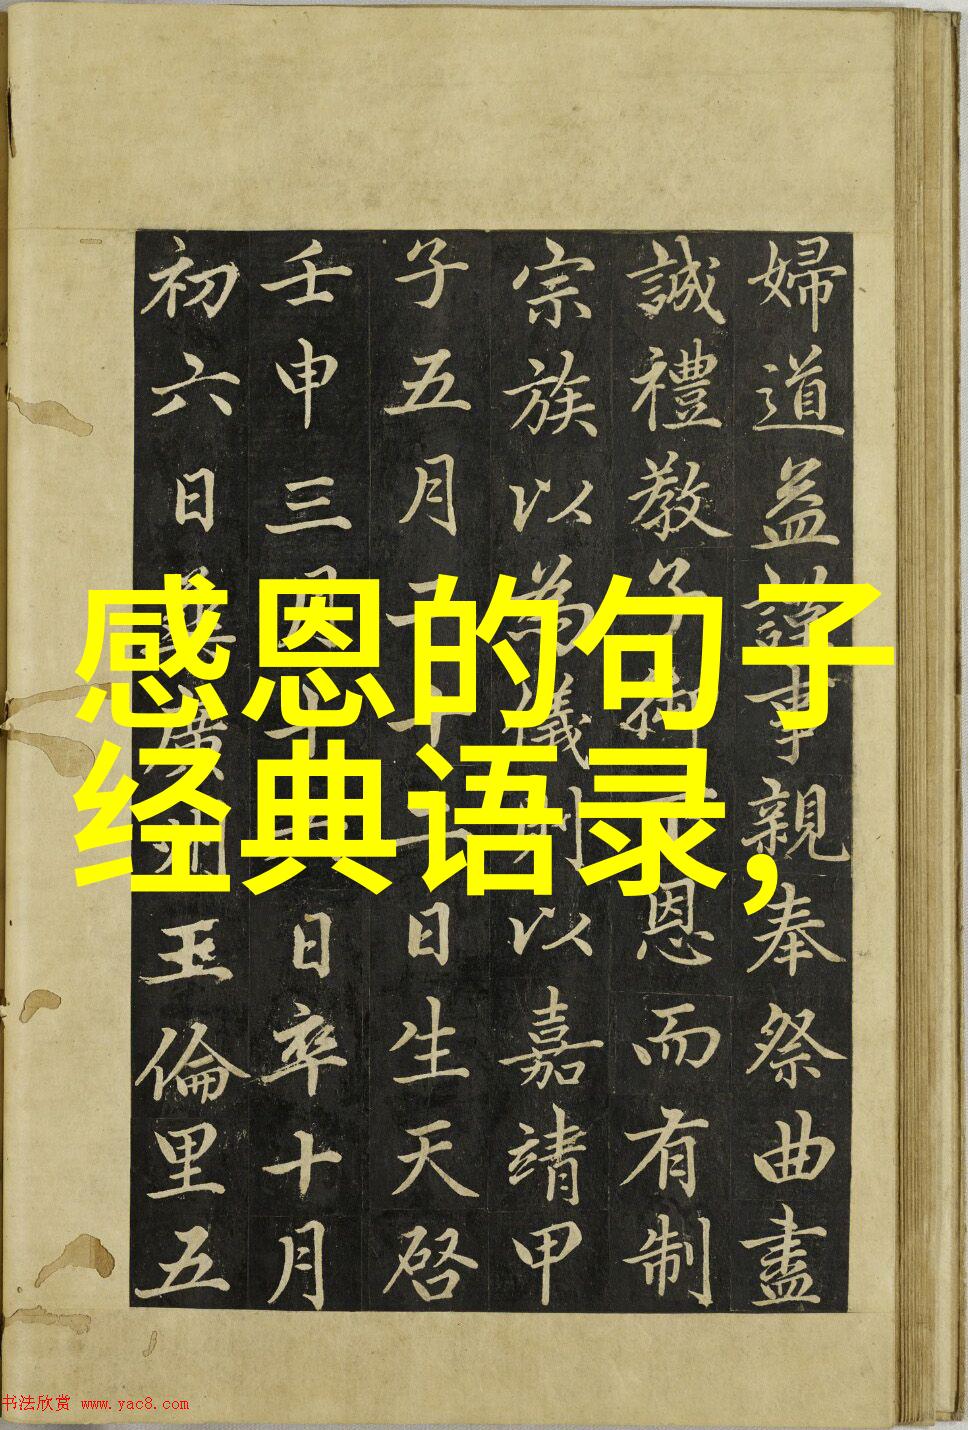 感恩的句子
经典语录,
婦道益謹事親奉祭曲盡
誠禮教子御下恩而有制
宗族以為儀刑以嘉靖甲
子五月十日生天啓
壬申三月十日卒十月
初六日葬廣州玉倫里五
书法欣赏 www.yac8.com